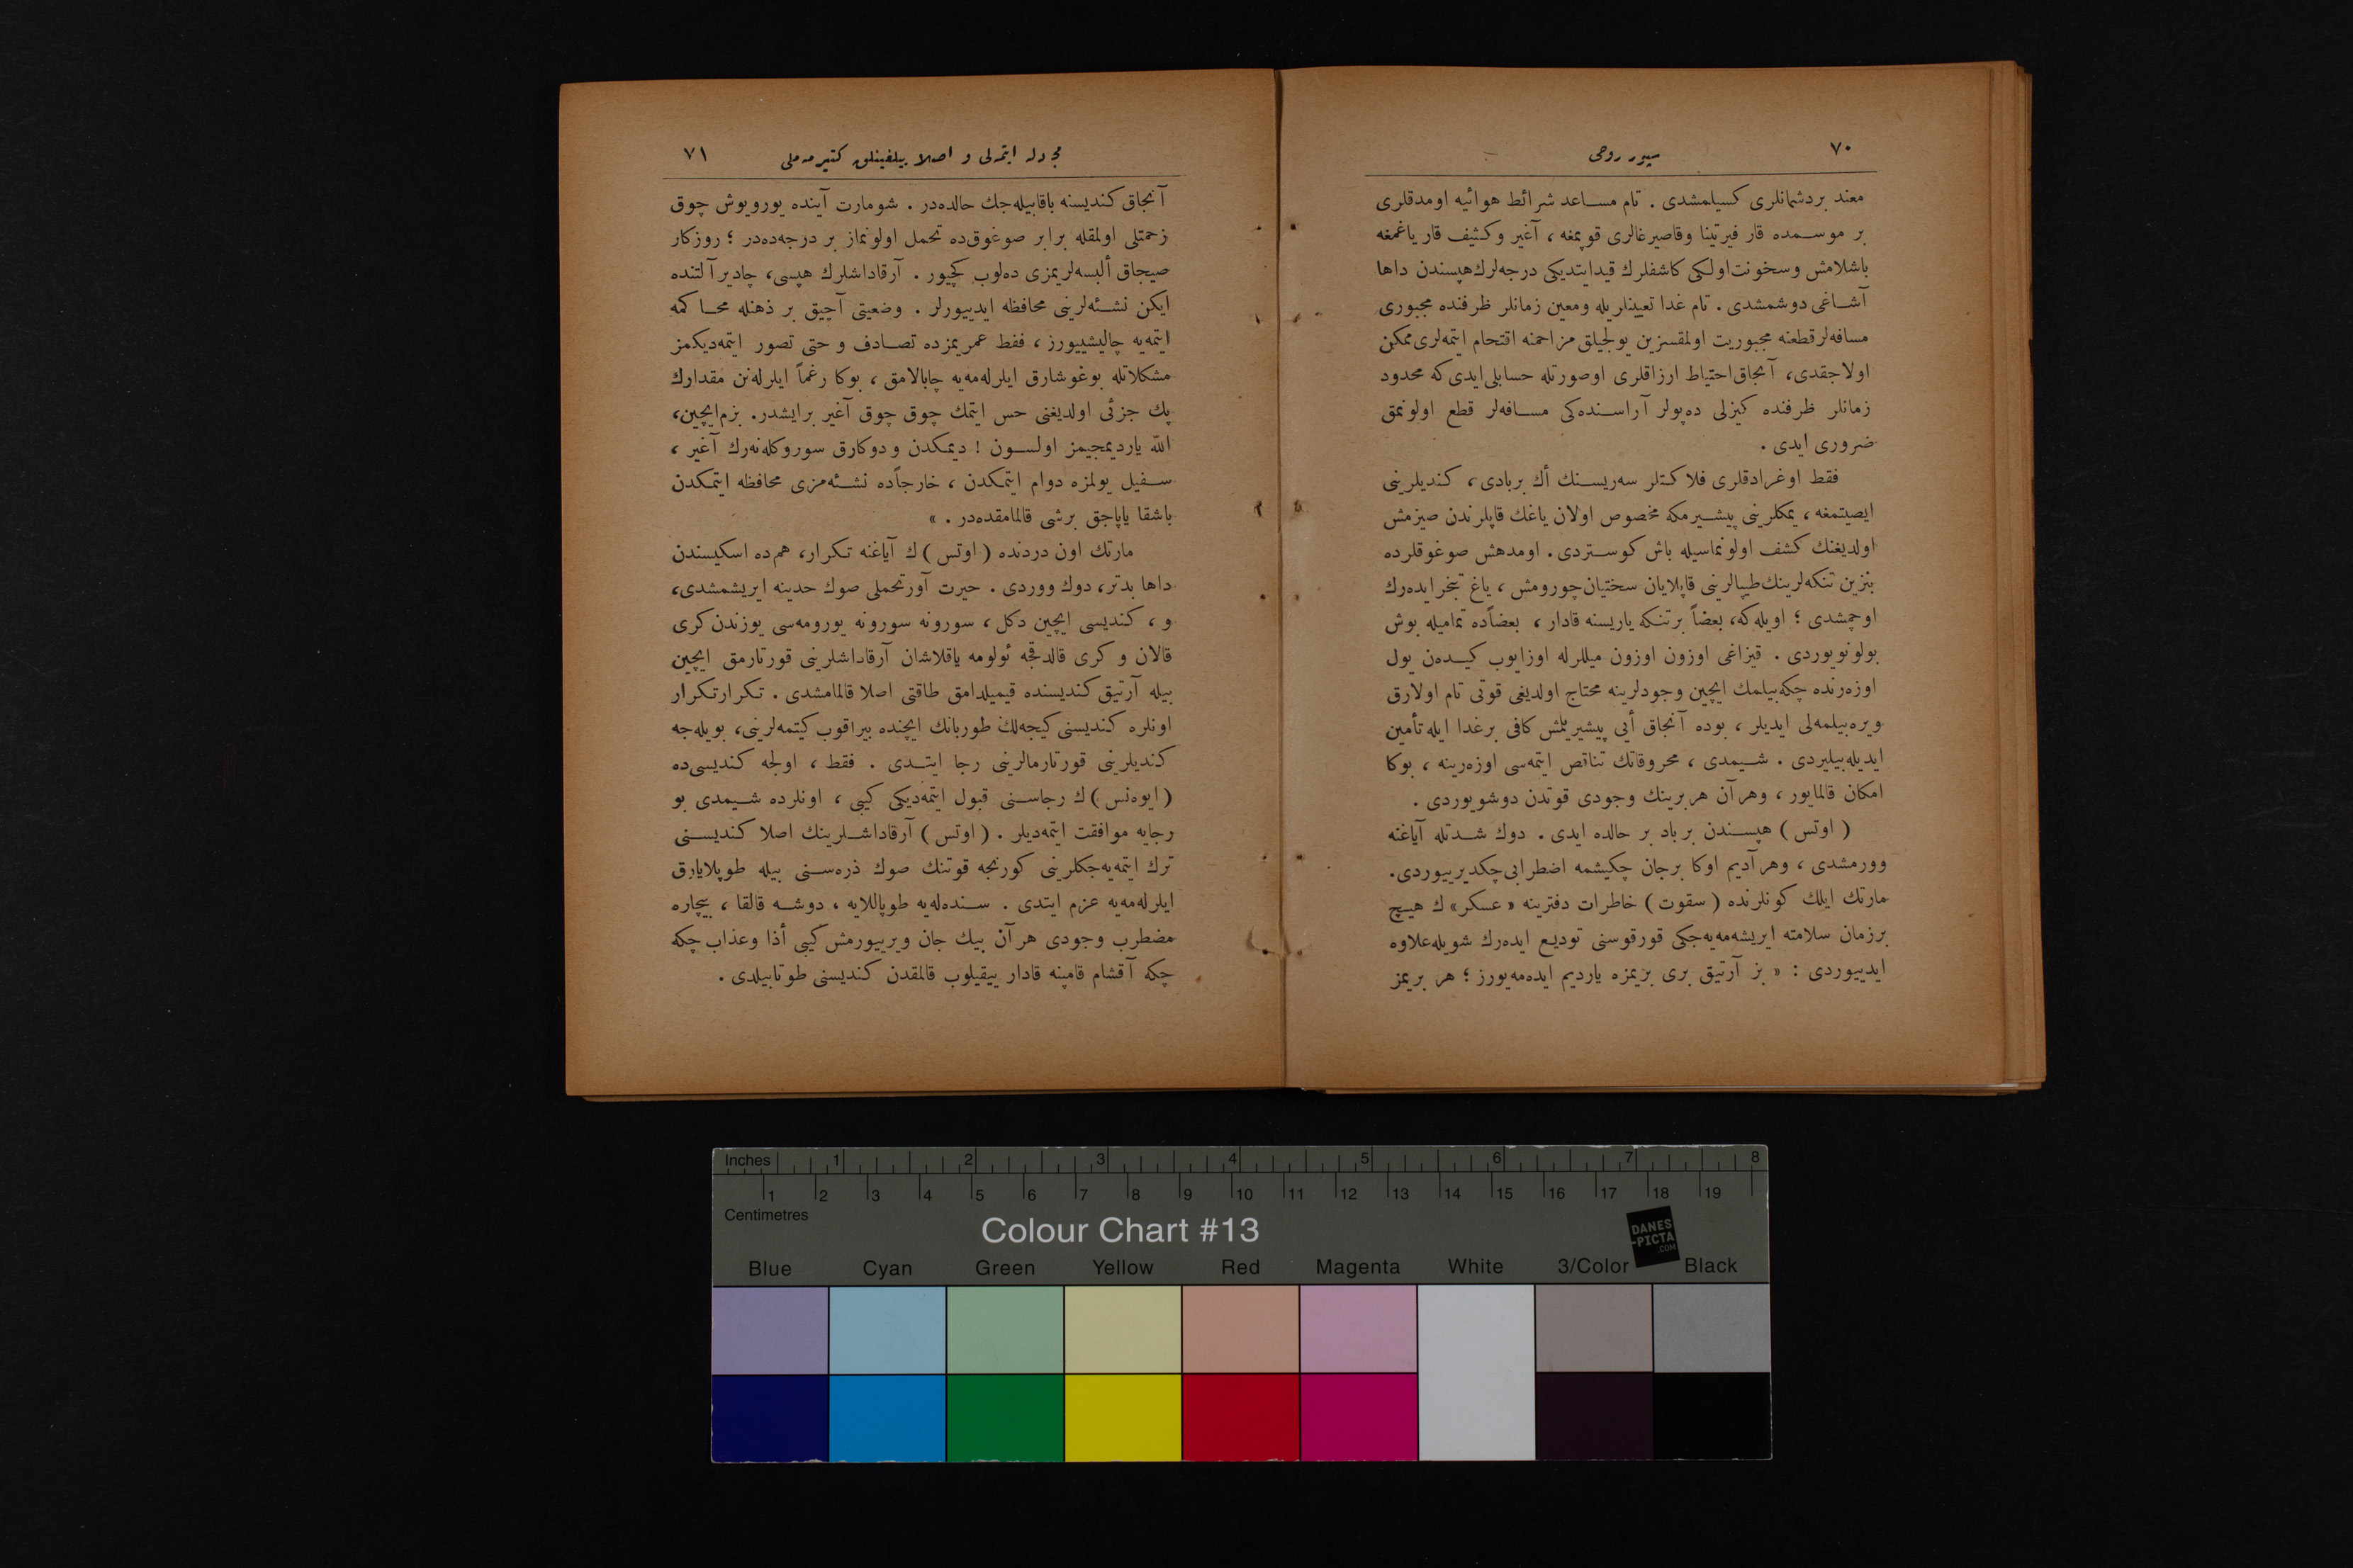 ٧٠
سپور روحی
معند بردشمانلری کسیلمشدی . تام مساعد شرائط هوائیه اومدقلری
بر موسمده قار فیرتینا وقاصیرغالری قوپمغه ، آغیر وکثیف قار یاغمغه
باشلامش وسخونت اولکی کاشفلرك قیدایتدیکی درجه‌لرك هپسندن داها
آشاغی دوشمشدی . تام غدا تعیینلریله ومعین زمانلر ظرفنده مجبوری
مسافه‌لر قطعنه مجبوریت اولمقسزین یولجیلق مزاحمنه اقتحام ایتمه‌لری ممکن
اولاجقدی، آنجاق احتیاط ارزاقلری اوصورتله حسابلی ایدی که محدود
زمانلر ظرفنده کیزلی ده‌پولر آراسنده‌کی مسافه‌لر قطع اولونمق
ضروری ایدی .
فقط اوغرادقلری فلاکتلر سه‌ریسنك أك بربادی ، کندیلرینی
ایصیتمغه ، یمکلرینی پیشیرمکه مخصوص اولان یاغك قاپلرندن صیزمش
اولدیغنك کشف اولونماسیله باش کوستردی . اومدهش صوغوقلرده
بنزین تنکه‌لرینك طیپالرینی قاپلایان سختیان چورومش ، یاغ تبخر ایده‌رك
اوچمشدی ؛ اویله‌که، بعضاً برتنکه یاریسنه قادار ، بعضاًده تمامیله بوش
بولونویوردی . قیزاغی اوزون اوزون میللرله اوزایوب کیدن یول
اوزه‌رنده چکه‌بیلمك ایچین وجودلرینه محتاج اولدیغی قوتی تام اولارق
ویره‌بیلمه‌لی ایدیلر ، بوده آنجاق أیی پیشیریلمش کافی برغدا ایله تأمین
ایدیله‌بیلیردی . شیمدی ، محروقاتك تناقص ایتمه‌سی اوزه‌رینه ، بوکا
امکان قالمایور ، وهر آن هر برینك وجودی قوتدن دوشویوردی .
( اوتس ) هپسندن برباد بر حالده ایدی . دوك شدتله آیاغنه
وورمشدی ، وهر آدیم اوکا برجان چکیشمه اضطرابی چکدیرییوردی.
مارتك ایلك کونلرنده ( سقوت ) خاطرات دفترینه « عسکر» ك هیچ
برزمان سلامته ایریشه‌مه‌یه‌جکی قورقوسنی تودیع ایده‌رك شویله علاوه
ایدییوردی : « بز آرتیق بری بزیمزه یاردیم ایده‌مه‌یورز ؛ هر بریمز
مجادله ایتمه‌لی و اصلا بیلغینلق کتیرمه‌ملی
٧١
آنجاق کندیسنه باقابیله‌جك حالده‌در . شومارت آینده یورویوش چوق
زحمتلی اولمقله برابر صوغوق‌ده تحمل اولونماز بر درجه‌ده‌در ؛ روزکار
صیجاق ألبسه‌لریمزی ده‌لوب کچیور . آرقاداشلرك هپسی ، چادیر آلتنده
ایکن نشئه‌لرینی محافظه ایدییورلر . وضعیتی آچیق بر ذهنله محاکمه
ایتمه‌یه چالیشییورز ، فقط عمریمزده تصادف و حتی تصور ایتمه‌دیکمز
مشکلاتله بوغوشارق ایلرله‌مه‌یه چابالامق ، بوکا رغماً ایلرله‌نن مقدارك
پك جزئی اولدیغنی حس ایتمك چوق چوق آغیر برایشدر. بزم ایچین،
الله یاردیمجیمز اولسون ! دیمکدن ودوکارق سوروکله‌نه‌رك آغیر ،
سفیل یولمزه دوام ایتمکدن ، خارجاًده نشئه‌مزی محافظه ایتمکدن
باشقا یاپاجق برشی قالمامقده‌در . »
مارتك اون دردنده ( اوتس ) ك آیاغنه تکرار، هم‌ده اسکیسندن
داها بدتر، دوك ووردی . حیرت آور تحملی صوك حدینه ایریشمشدی،
و ، کندیسی ایچین دکل ، سورونه سورونه یورومه‌سی یوزندن کری
قالان و کری قالدقجه ئولومه یاقلاشان آرقاداشلرینی قورتارمق ایچین
بیله آرتیق کندیسنده قیمیلدامق طاقتی اصلا قالمامشدی . تکرار تکرار
اونلره کندیسنی کیجه‌لك طوربانك ایچنده بیراقوب کیتمه‌لرینی، بویله‌جه
کندیلرینی قورتارمالرینی رجا ایتدی . فقط ، اولجه کندیسی‌ده
( ایوه‌نس ) ك رجاسنی قبول ایتمه‌دیکی کیبی ، اونلرده شیمدی بو
رجایه موافقت ایتمه‌دیلر . ( اوتس ) آرقاداشلرینك اصلا کندیسنی
ترك ایتمه‌یه‌جکلرینی کورنجه قوتنك صوك ذره‌سنی بیله طوپلایارق
ایلرله‌مه‌یه عزم ایتدی . سنده‌له‌یه طوپاللایه ، دوشه قالقا ، بیچاره
مضطرب وجودی هر آن بیك جان ویرییورمش کیبی أذا وعذاب چکه
چکه آقشام قامپنه قادار ییقیلوب قالمقدن کندیسنی طوتابیلدی .
Inches 1 2 3 4 5 6 7 8
1 2 3 4 5 6 7 8 9 10 11 12 13 14 15 16 17 18 19
Centimetres
Colour Chart #13
DANES
-PICTA
.COM
Blue Cyan Green Yellow Red Magenta White 3/Color Black